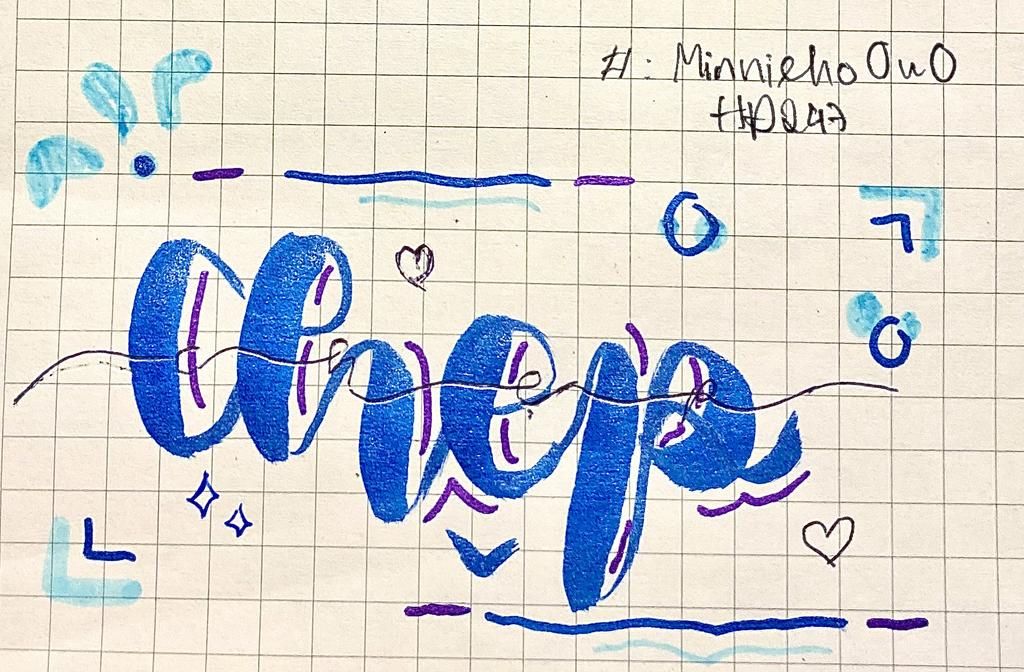 #: Minnieho OuO
HD247
Chep